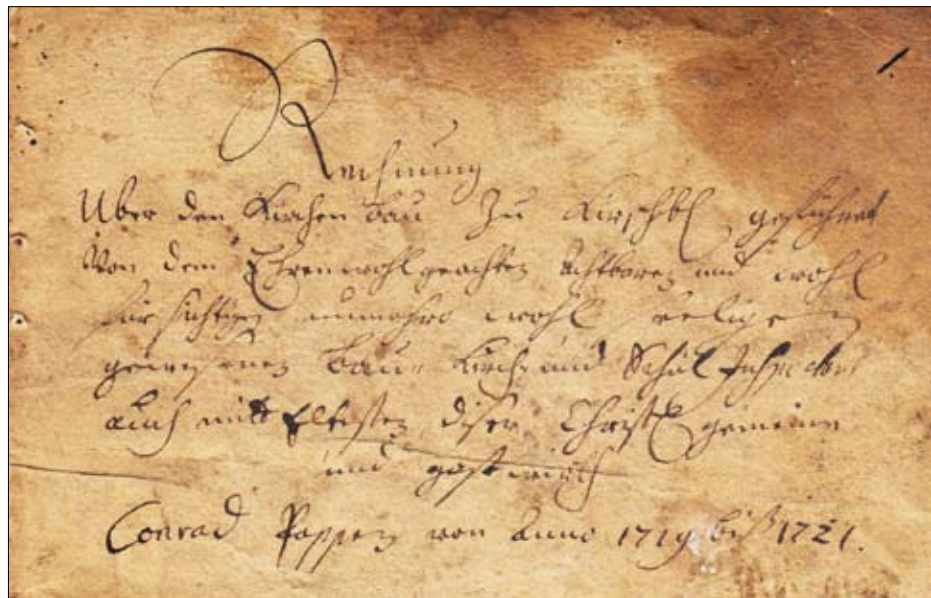 Rechnung
Über den Kirchen bau zu geführet
Von dem Ehrenwohlgeachten Achtbaren und wohl
für sichtigen nunmehro wohl seeligen
gewesenen bau- Kirch- und Schul Inspector
auch mitt Eltesten diser Christl gemeine
und gastwirth
Conrad Poppen von anno 1719 biß 1721.